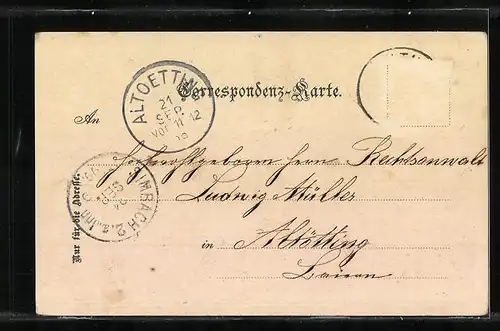 Correspondenz-Karte.
ALTOETTING
21
SEP.
VOR 11-12
An
Hochwohlgeboren Herrn Rechtsanwalt
Ludwig Müller
in Altötting
Baiern
Nur für die Adresse.
SIMBACH